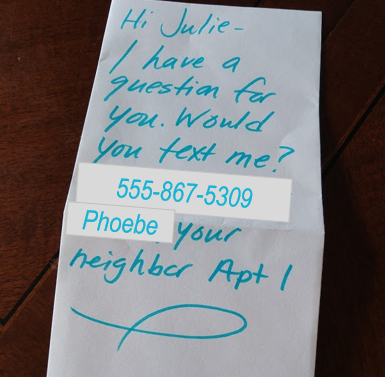 Hi Julie-
I have a
question for
you. Would
you text me?
555-867-5309
Phoebe, your
neighbor Apt 1